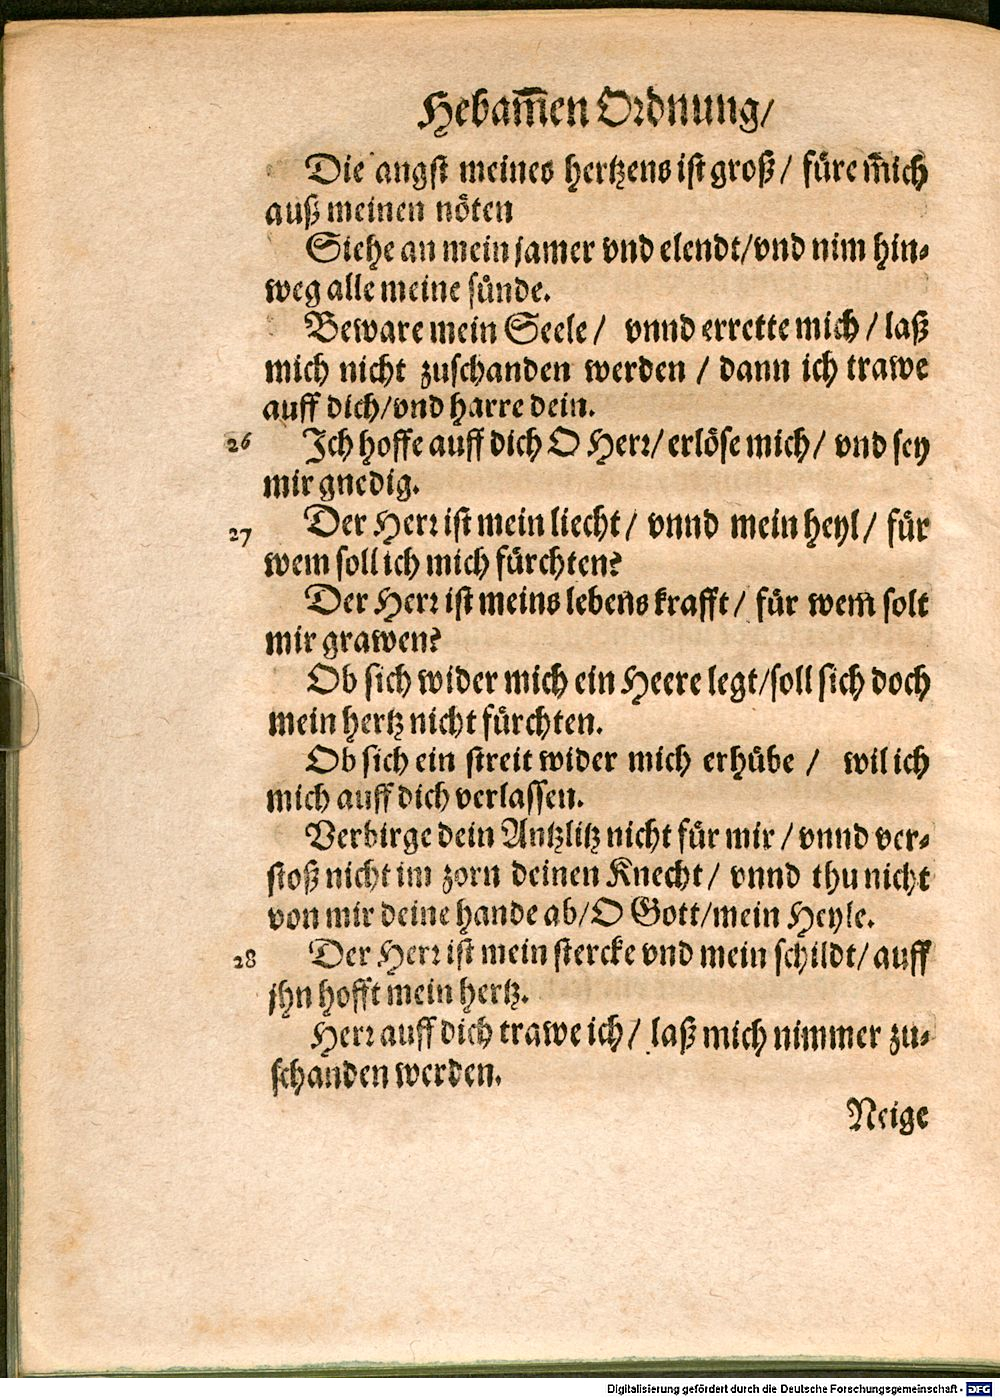 Hebam̄en Ordnung/
Die angst meines hertzens ist groß / füre mich
auß meinen nöten
Siehe an mein jamer vnd elendt/vnd nim hin⸗
weg alle meine sünde.
Beware mein Seele / vnnd errette mich / laß
mich nicht zuschanden werden / dann ich trawe
auff dich/vnd harre dein.
26 Ich hoffe auff dich O Herr/ erlöse mich/ vnd sey
mir gnedig.
27 Der Herr ist mein liecht / vnnd mein heyl / für
wem soll ich mich fürchten?
Der Herr ist meins lebens krafft / für wem solt
mir grawen?
Ob sich wider mich ein Heere legt/soll sich doch
mein hertz nicht fürchten.
Ob sich ein streit wider mich erhübe / wil ich
mich auff dich verlassen.
Verbirge dein Antzlitz nicht für mir / vnnd ver⸗
stoß nicht im zorn deinen Knecht / vnnd thu nicht
von mir deine hande ab/O Gott/mein Heyle.
28 Der Herr ist mein stercke vnd mein schildt/ auff
jhn hofft mein hertz.
Herr auff dich trawe ich / laß mich nimmer zu⸗
schanden werden.
Neige
Digitalisierung gefördert durch die Deutsche Forschungsgemeinschaft - DFG